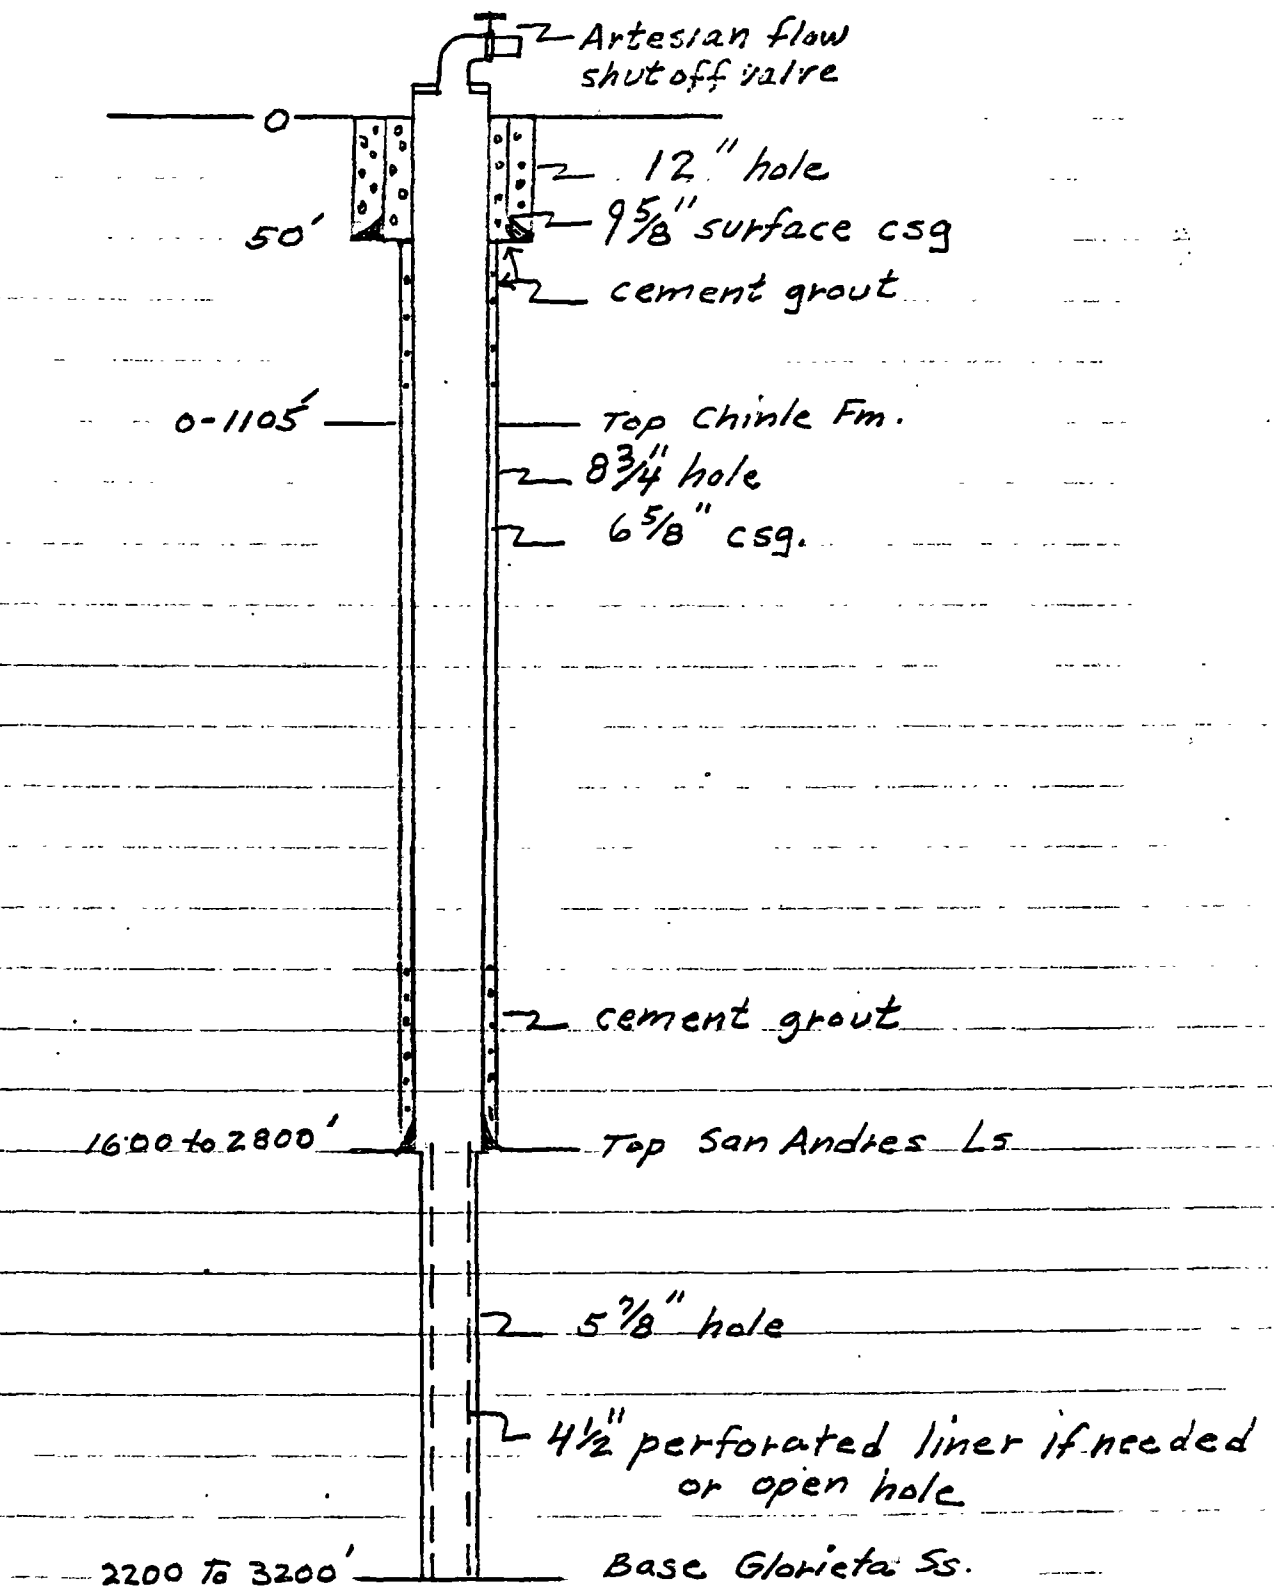 Artesian flow
shutoff valve
0
12" hole
50'
9 5/8" surface csg
cement grout
0-1105'
Top Chinle Fm.
8 3/4" hole
6 5/8" csg.
cement grout
1600 to 2800'
Top San Andres Ls
5 7/8" hole
4 1/2" perforated liner if needed
or open hole
2200 To 3200'
Base Glorieta Ss.